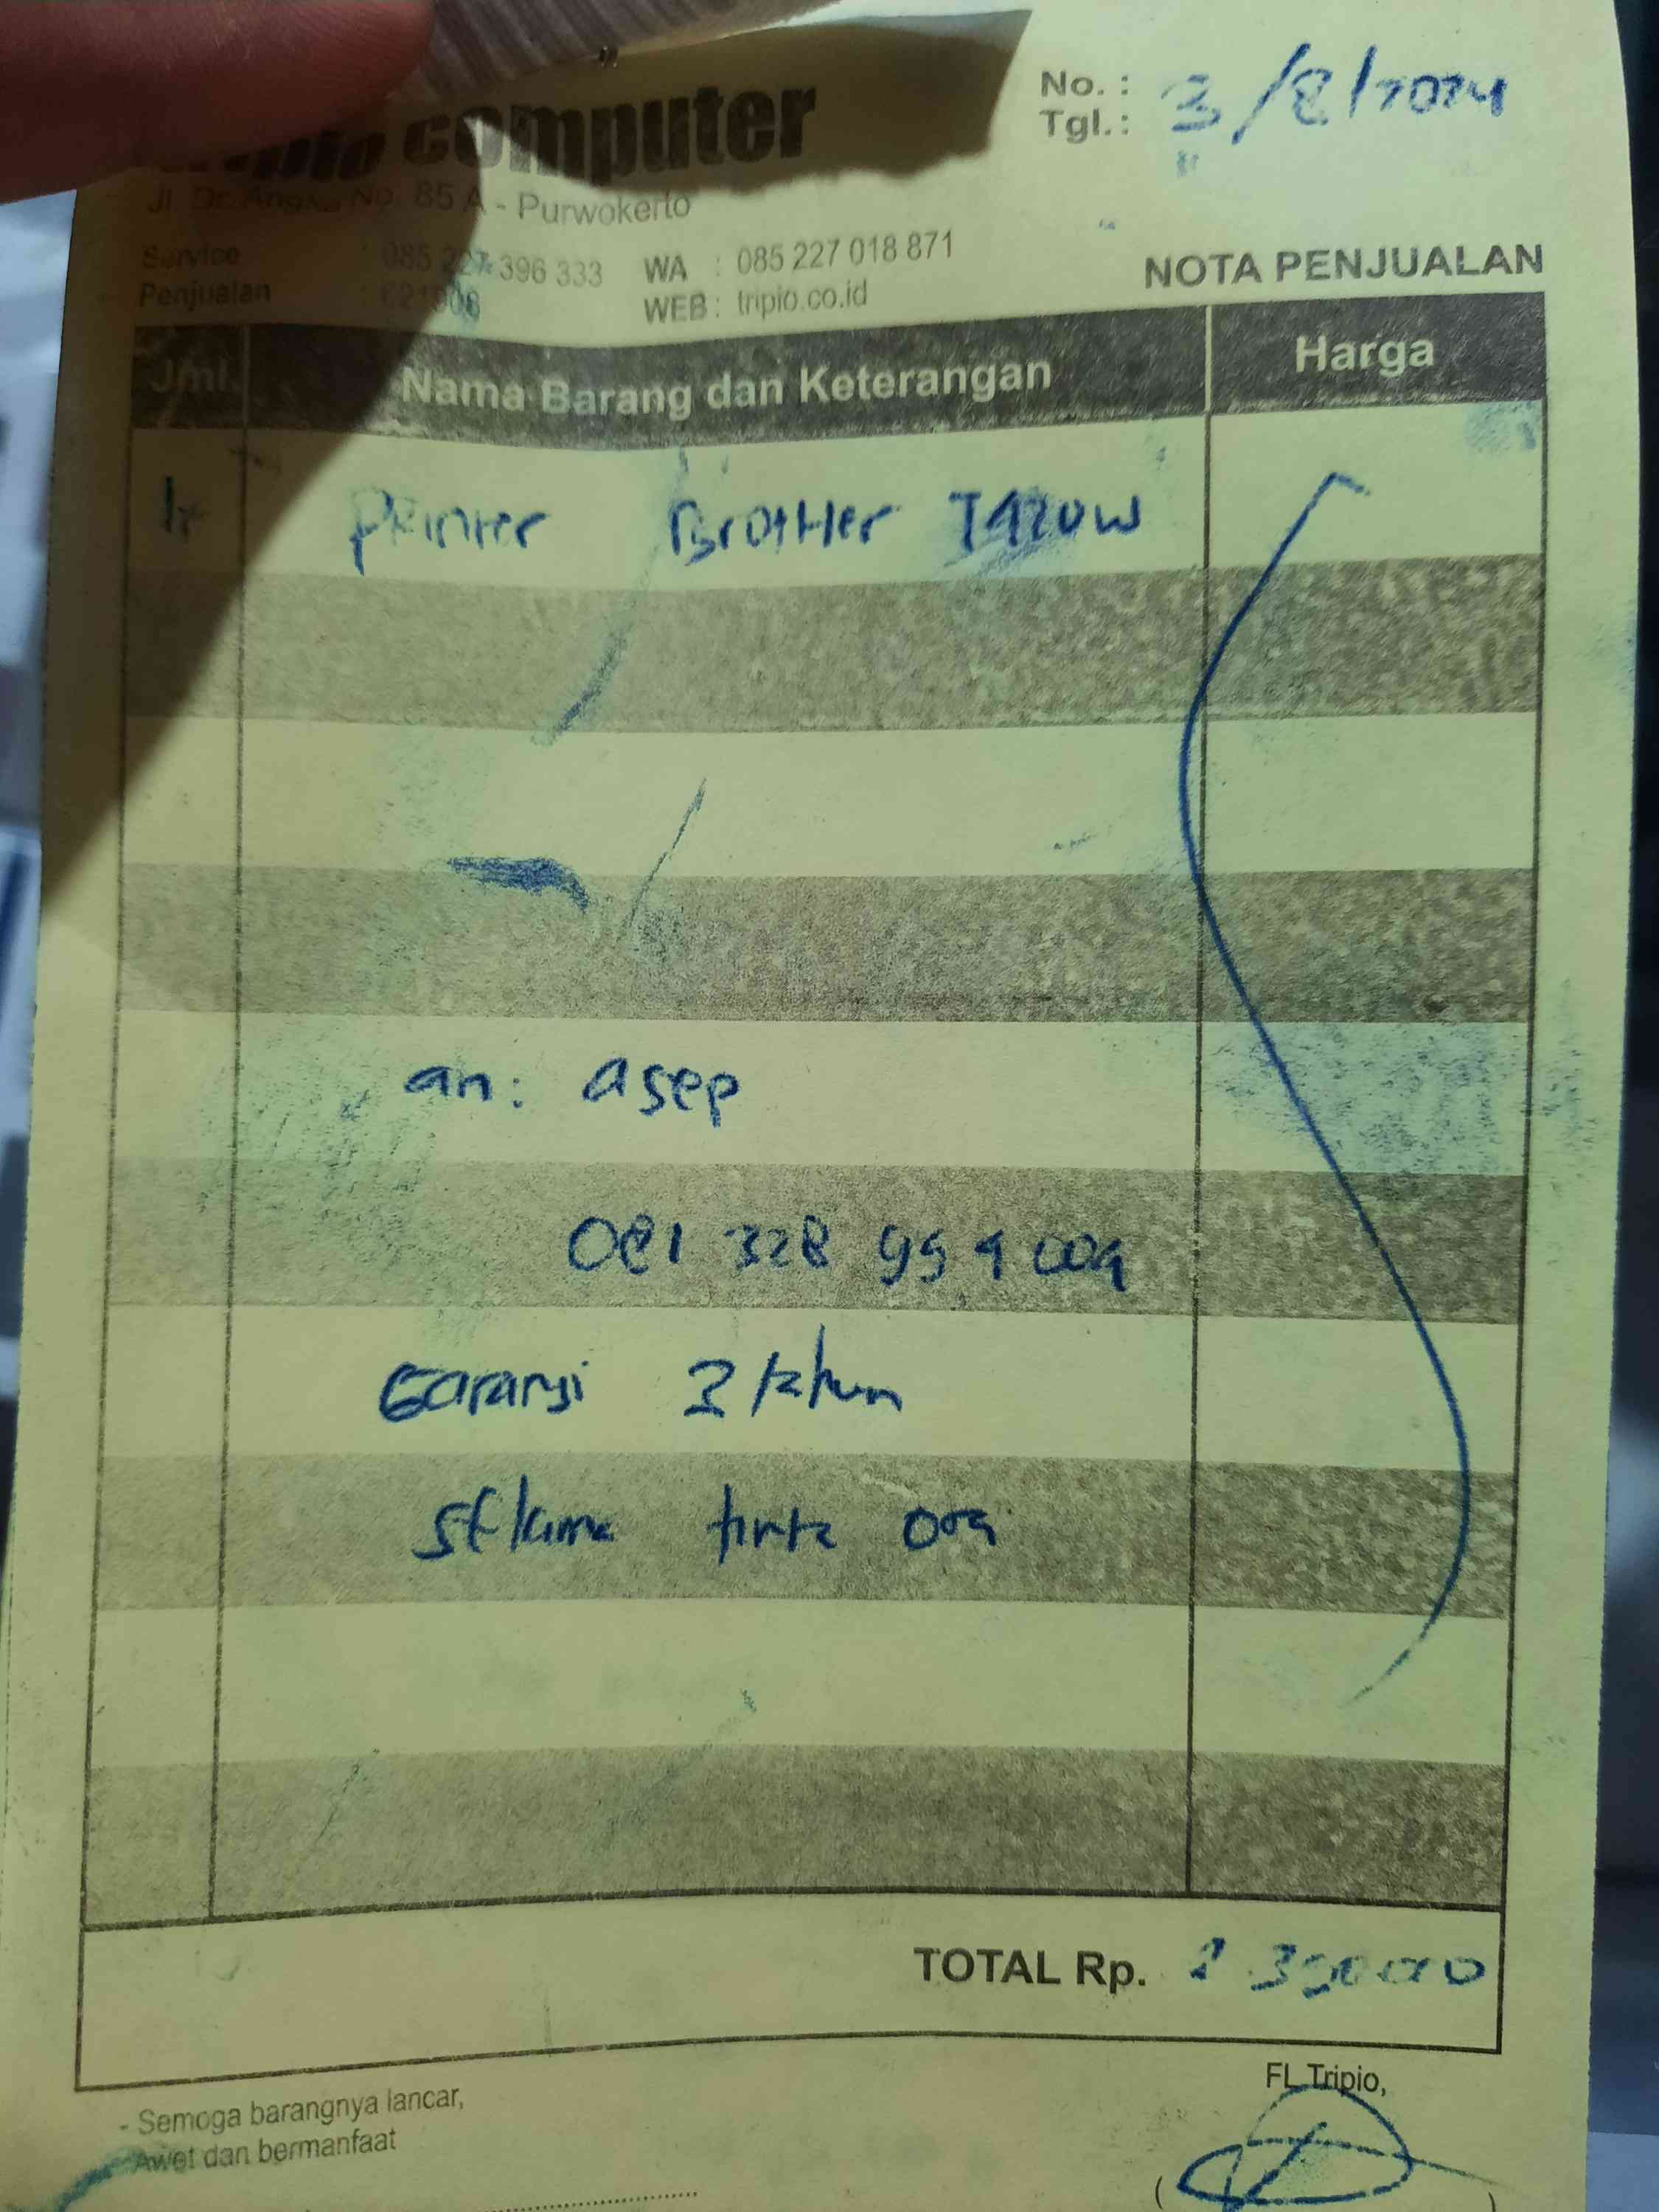 computer
No. :
Tgl. : 3/8/2024
Jl. Dr. Angka No. 85 A - Purwokerto
Service : 085 227 396 333 WA : 085 227 018 871
Penjualan WEB : tripio.co.id
NOTA PENJUALAN
Jml. Nama Barang dan Keterangan Harga
Printer Brother T420W
an: asep
081 328
Garansi tahun
selama tinta ori
TOTAL Rp.
FL Tripio,
- Semoga barangnya lancar,
Awet dan bermanfaat